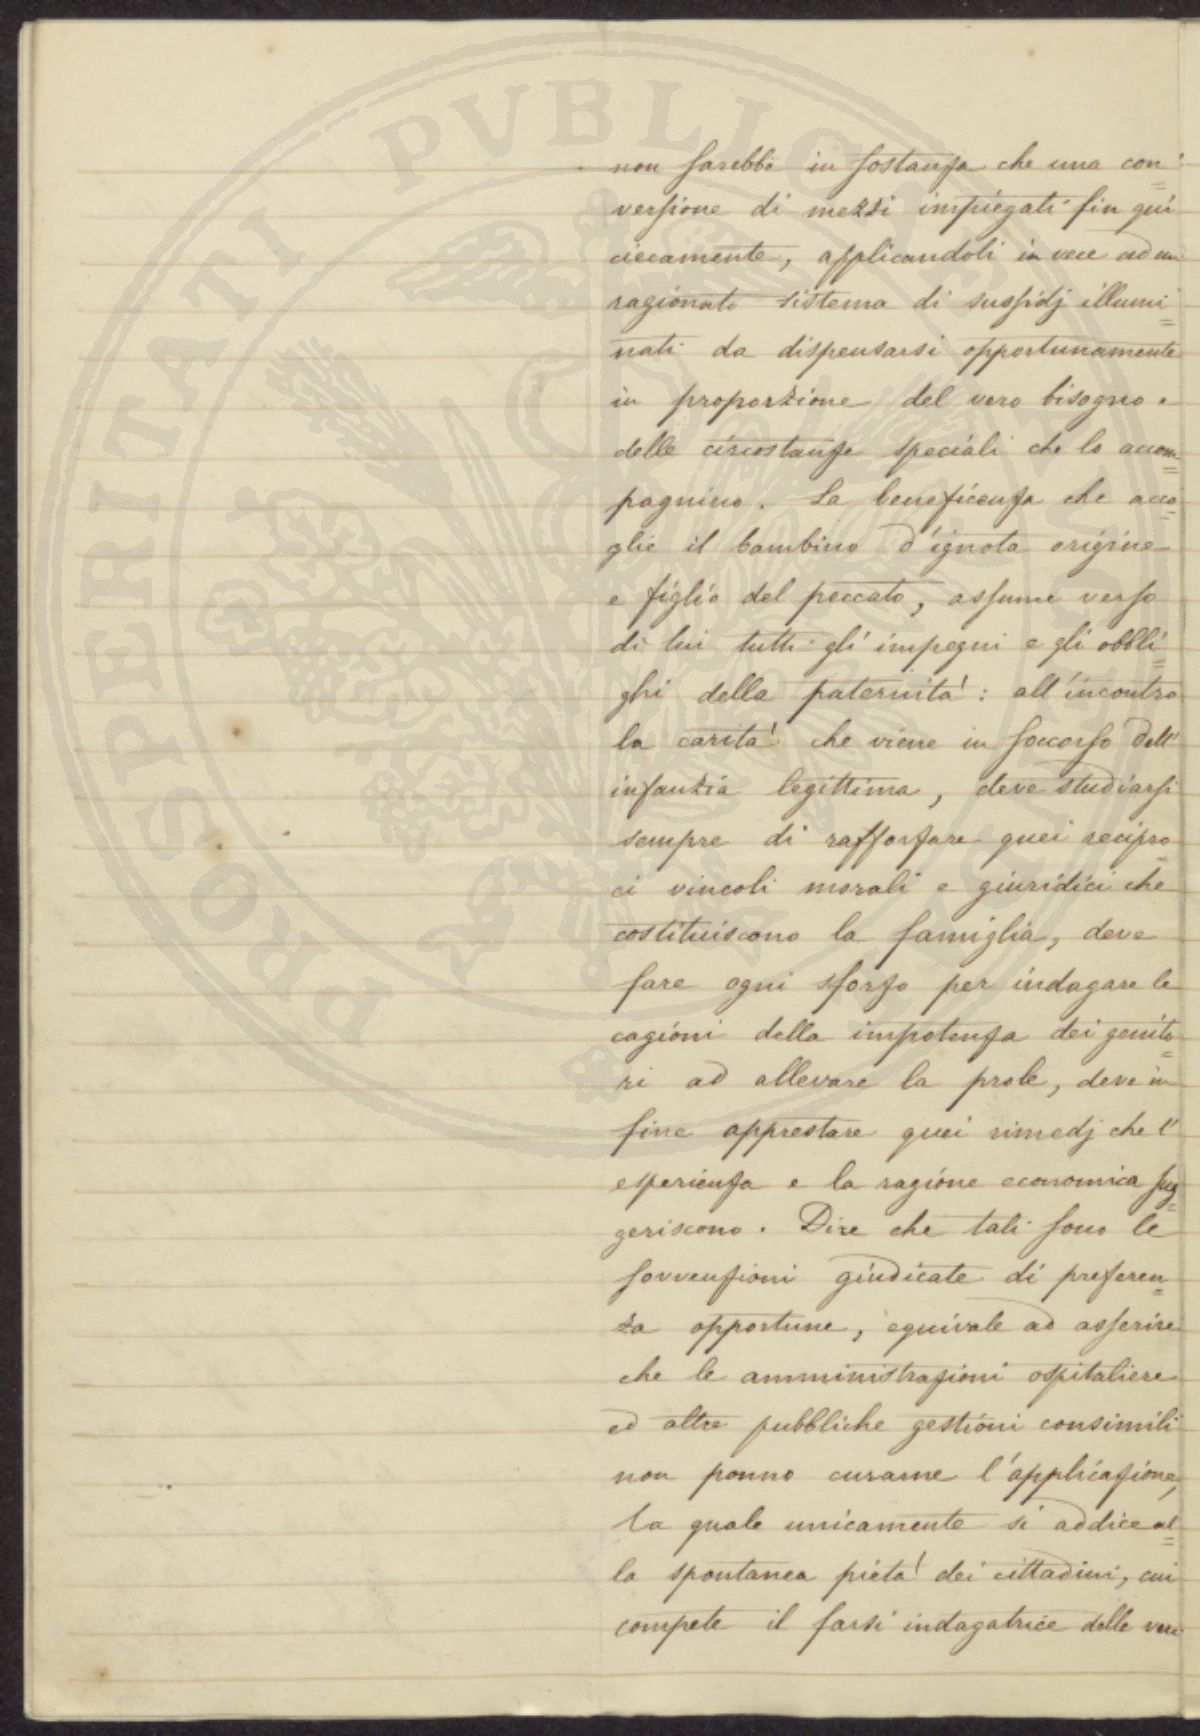 PROSPERITATI PVBLICAE
non sarebbe in sostanza che una con=
versione di mezzi impiegati fin qui
ciecamente, applicandoli in vece ad un
ragionato sistema di sussidj illumi=
nati da dispensarsi opportunamente
in proporzione del vero bisogno e
delle circostanze speciali che lo accom=
pagnino. La beneficenza che acco=
glie il bambino d'ignota origine
e figlio del peccato, assume verso
di lui tutti gli impegni e gli obbli=
ghi della paternità: all'incontro
la carità che viene in soccorso dell'
infanzia legittima, deve studiarsi
sempre di rafforzare quei recipro=
ci vincoli morali e giuridici che
costituiscono la famiglia, deve
fare ogni sforzo per indagare le
cagioni della impotenza dei genito=
ri ad allevare la prole, deve in
fine apprestare quei rimedj che l'
esperienza e la ragione economica sug=
geriscono. Dire che tali sono le
sovvenzioni giudicate di preferen=
za opportune, equivale ad asserire
che le amministrazioni ospitaliere
ed altre pubbliche gestioni consimili
non ponno curarne l'applicazione,
la quale unicamente si addice al=
la spontanea pietà dei cittadini, cui
compete il farsi indagatrice delle vere